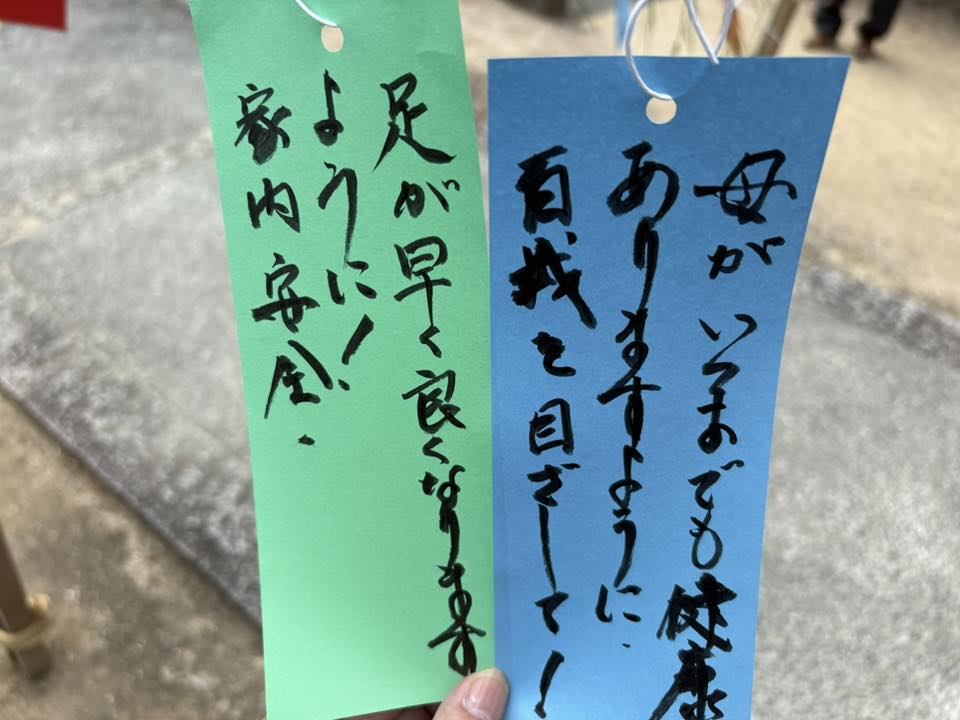 母がいつまでも健康
ありますように.
百歳を目ざして!
足が早く良くなります
ように!
家内安全.